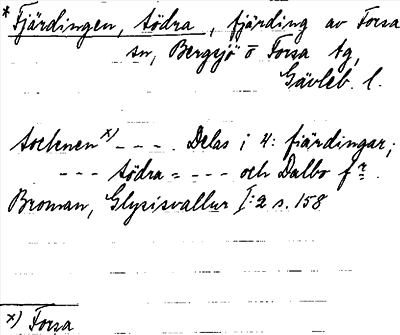 * Fjärdingen, södra, fjärding av Forsa
sn, Bergsjö o Forsa tg,
Gävleb. l.
socknen x) - - - . Delas i 4: fiärdingar;
- - - södra = - - - och Dalbo fr.
Broman, Glysisvallur I:2 s. 158
x) Forsa